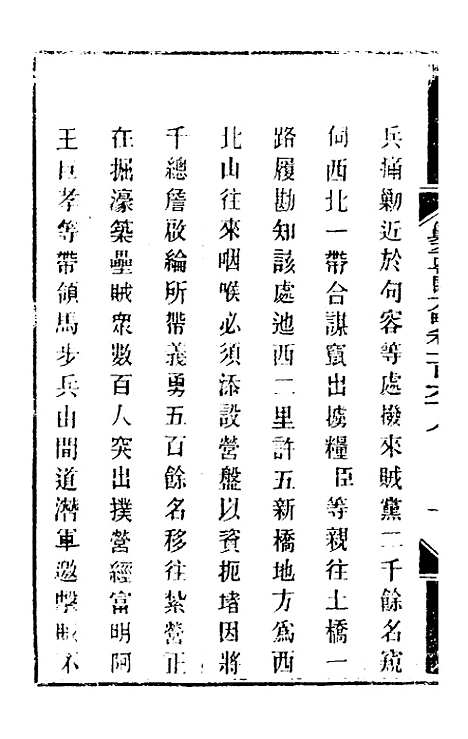 兵痛勦近於句容等處撥來賊黨二千餘名窺
伺西北一帶合謀竄出擄糧臣等親往土橋一
路履勘知該處迤西二里許五新橋地方爲西
北山往來咽喉必須添設營盤以資扼堵因將
千總詹啟綸所帶義勇五百餘名移往紮營正
在掘濠築壘賊衆數百人突出撲營經富明阿
王巨孝等帶領馬步兵由間道潛軍邀擊賊不